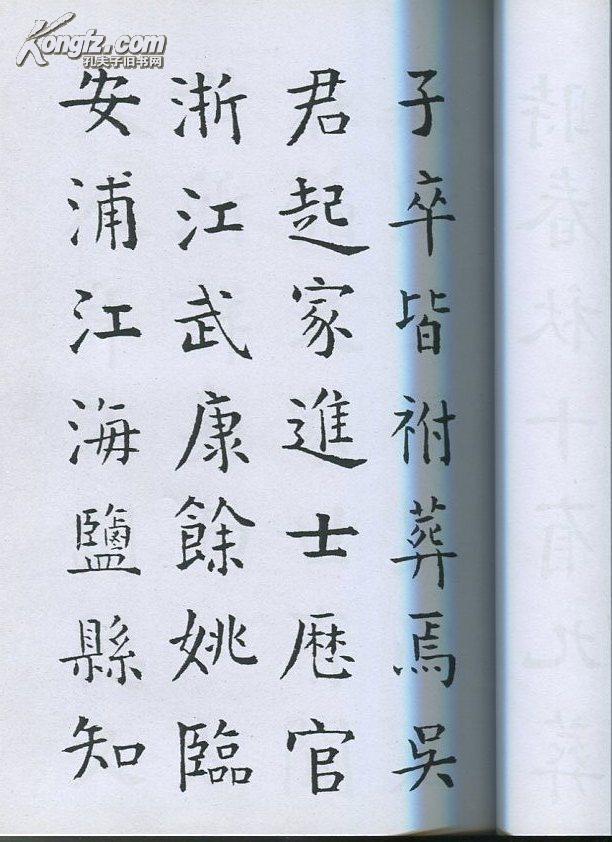 Kongfz.com
孔夫子旧书网
子卒皆祔葬焉吳
君起家進士歷官
浙江武康餘姚臨
安浦江海鹽縣知